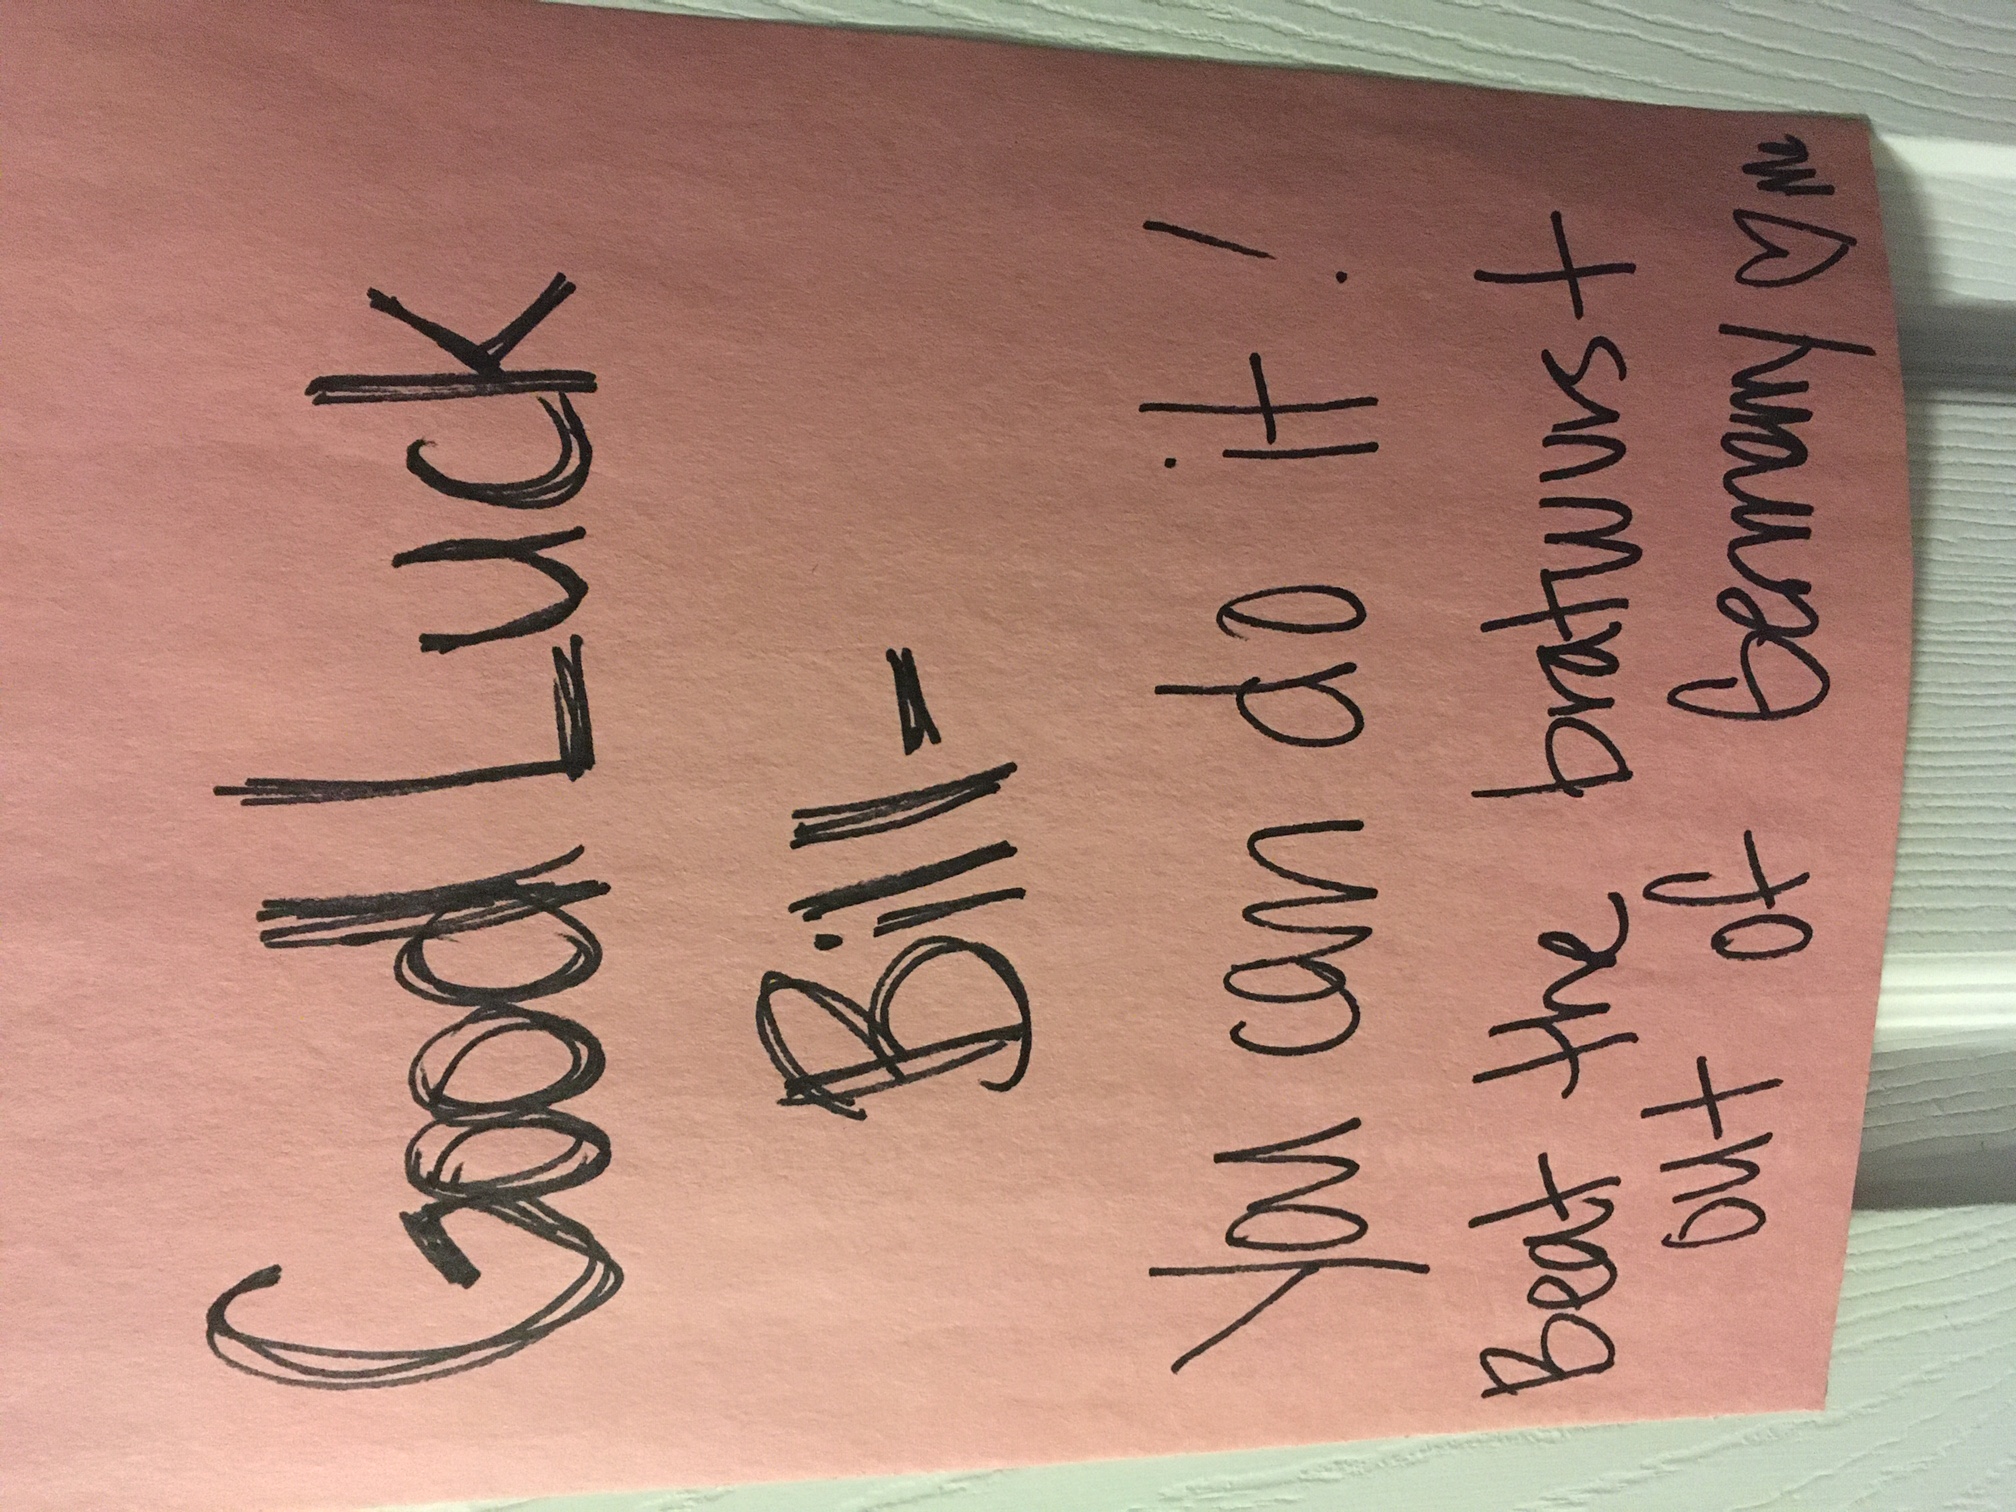 Good Luck
Bill-
You can do it!
Beat the bratwurst
out of Germany ♡ m